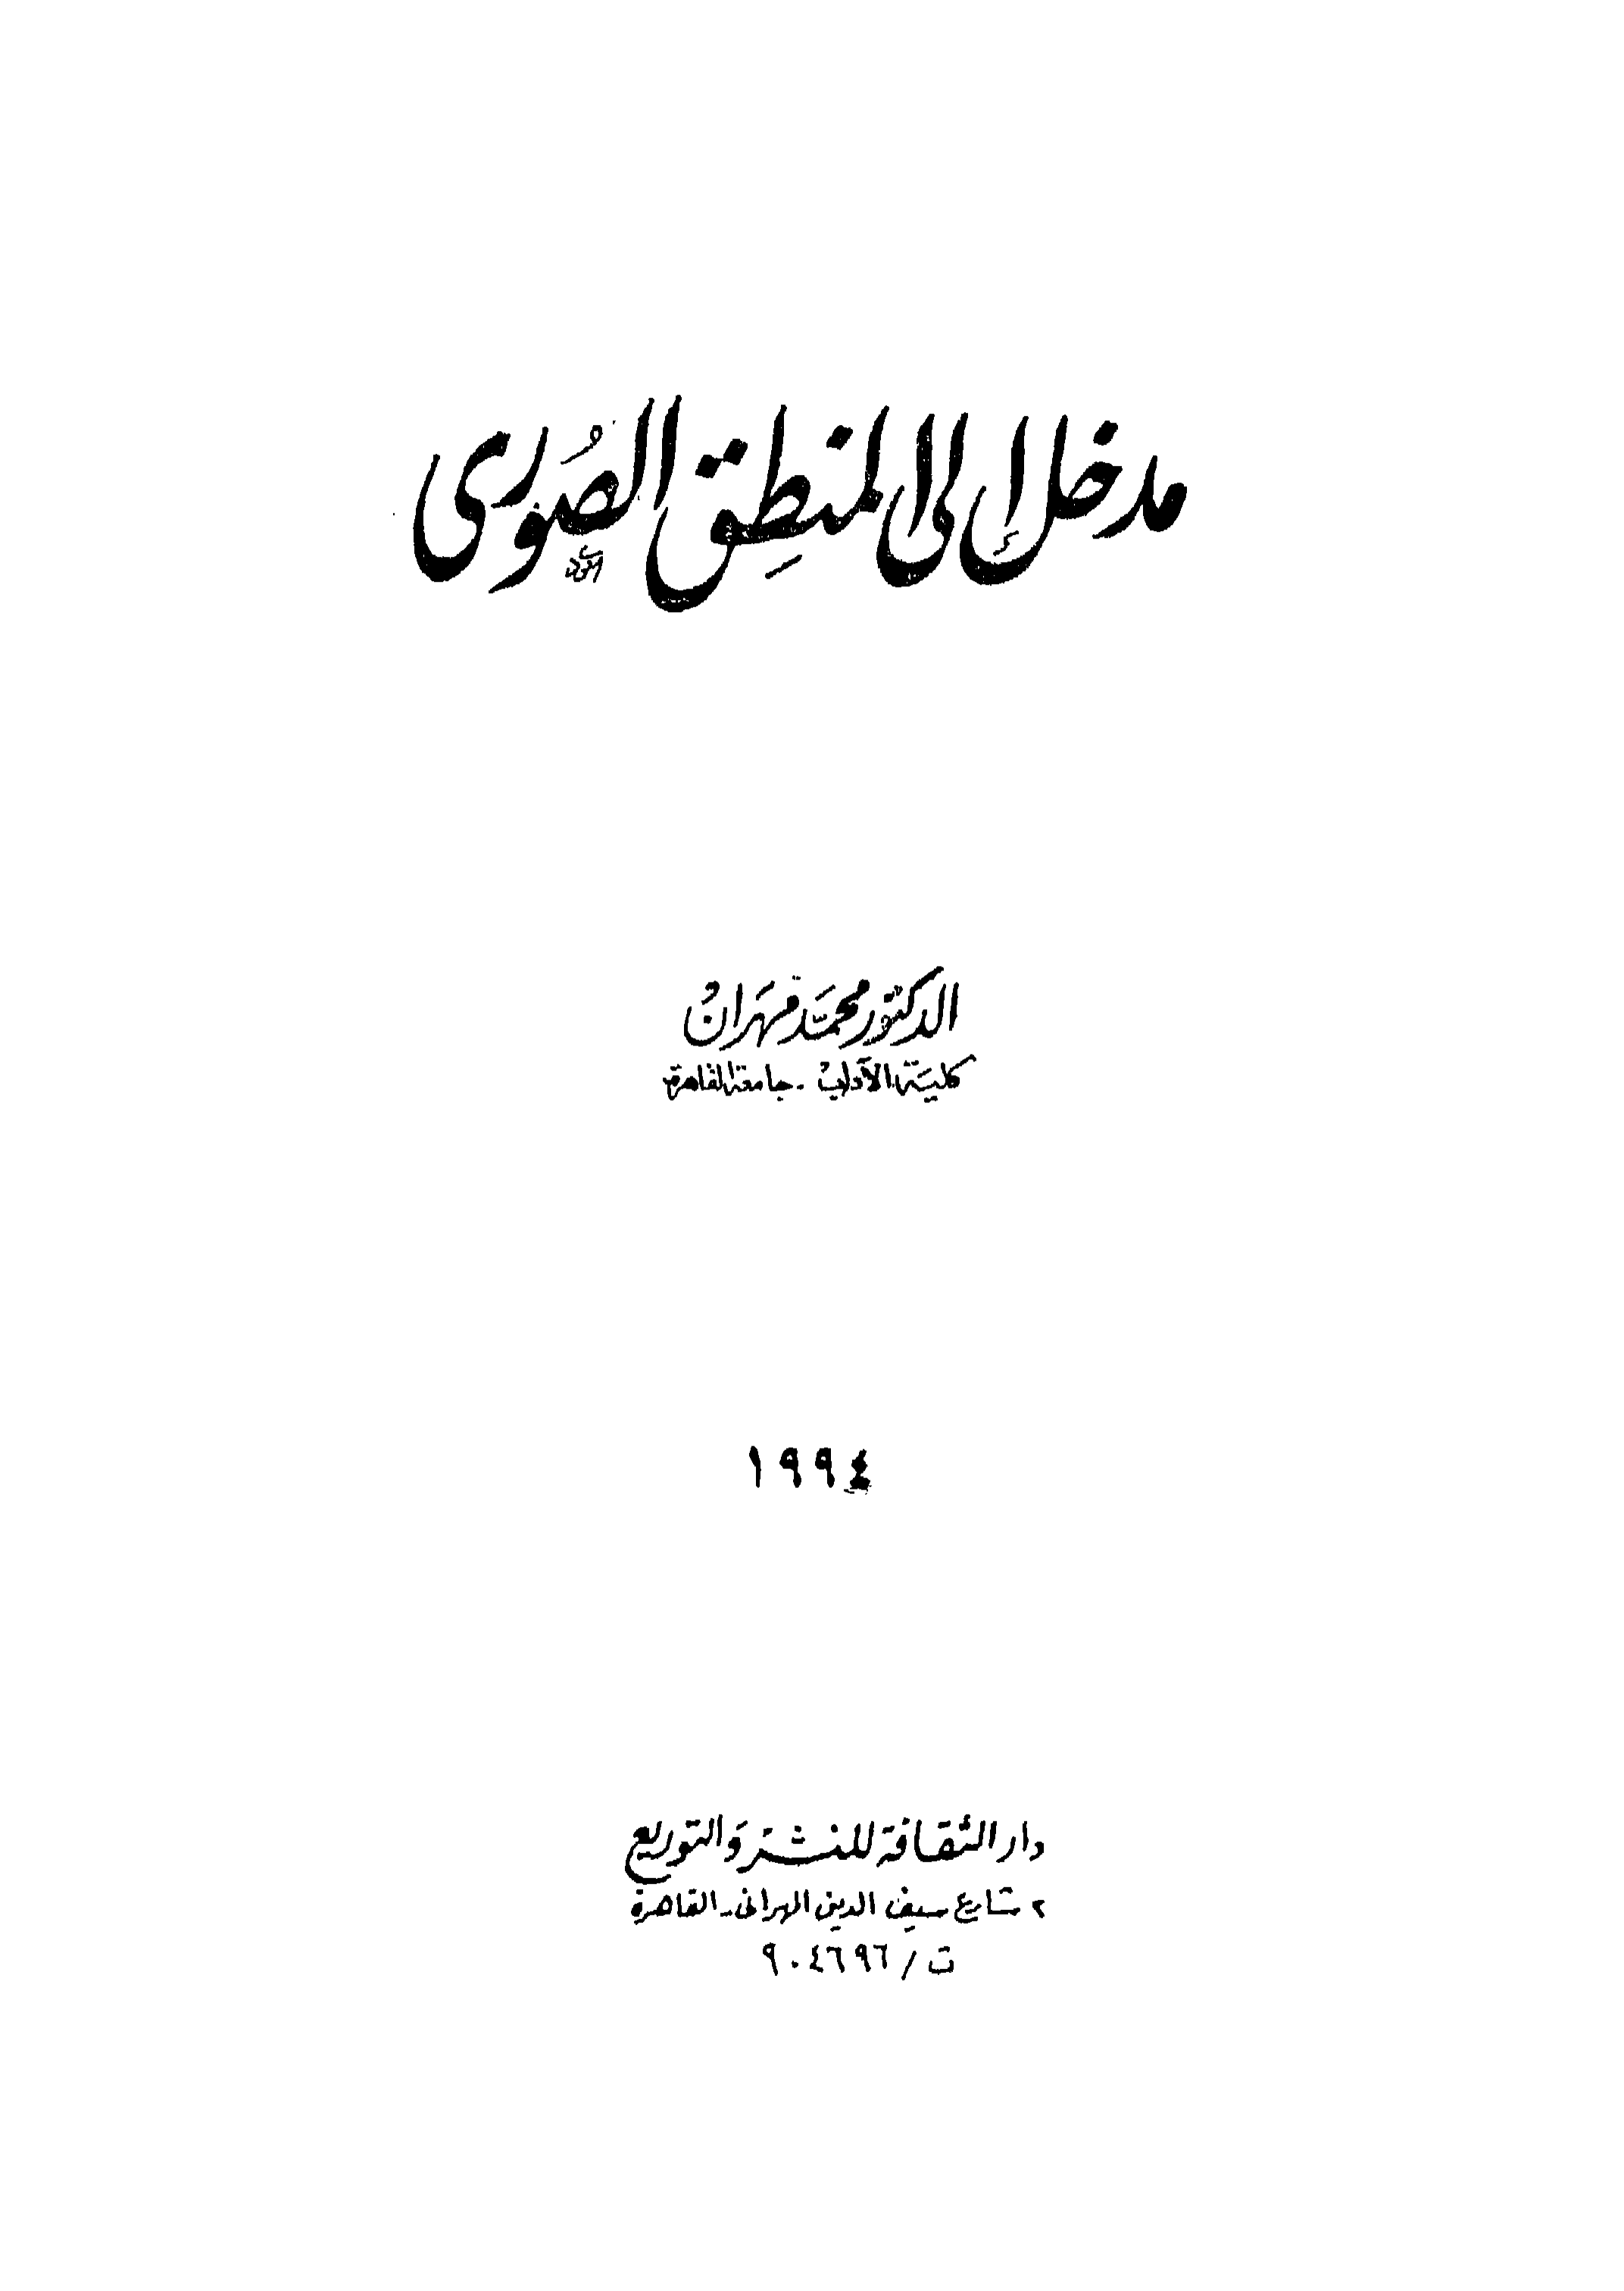 مدخل إلى المنطق الصُورى
الدكتور محمَّد مهران
كلية الآداب - جامعة القاهرة
١٩٩٤
دار الثقافة للنشر والتوزيع
٢ شارع سيف الدين المهرانى - القاهرة
ت / ٩٠٤٦٩٦